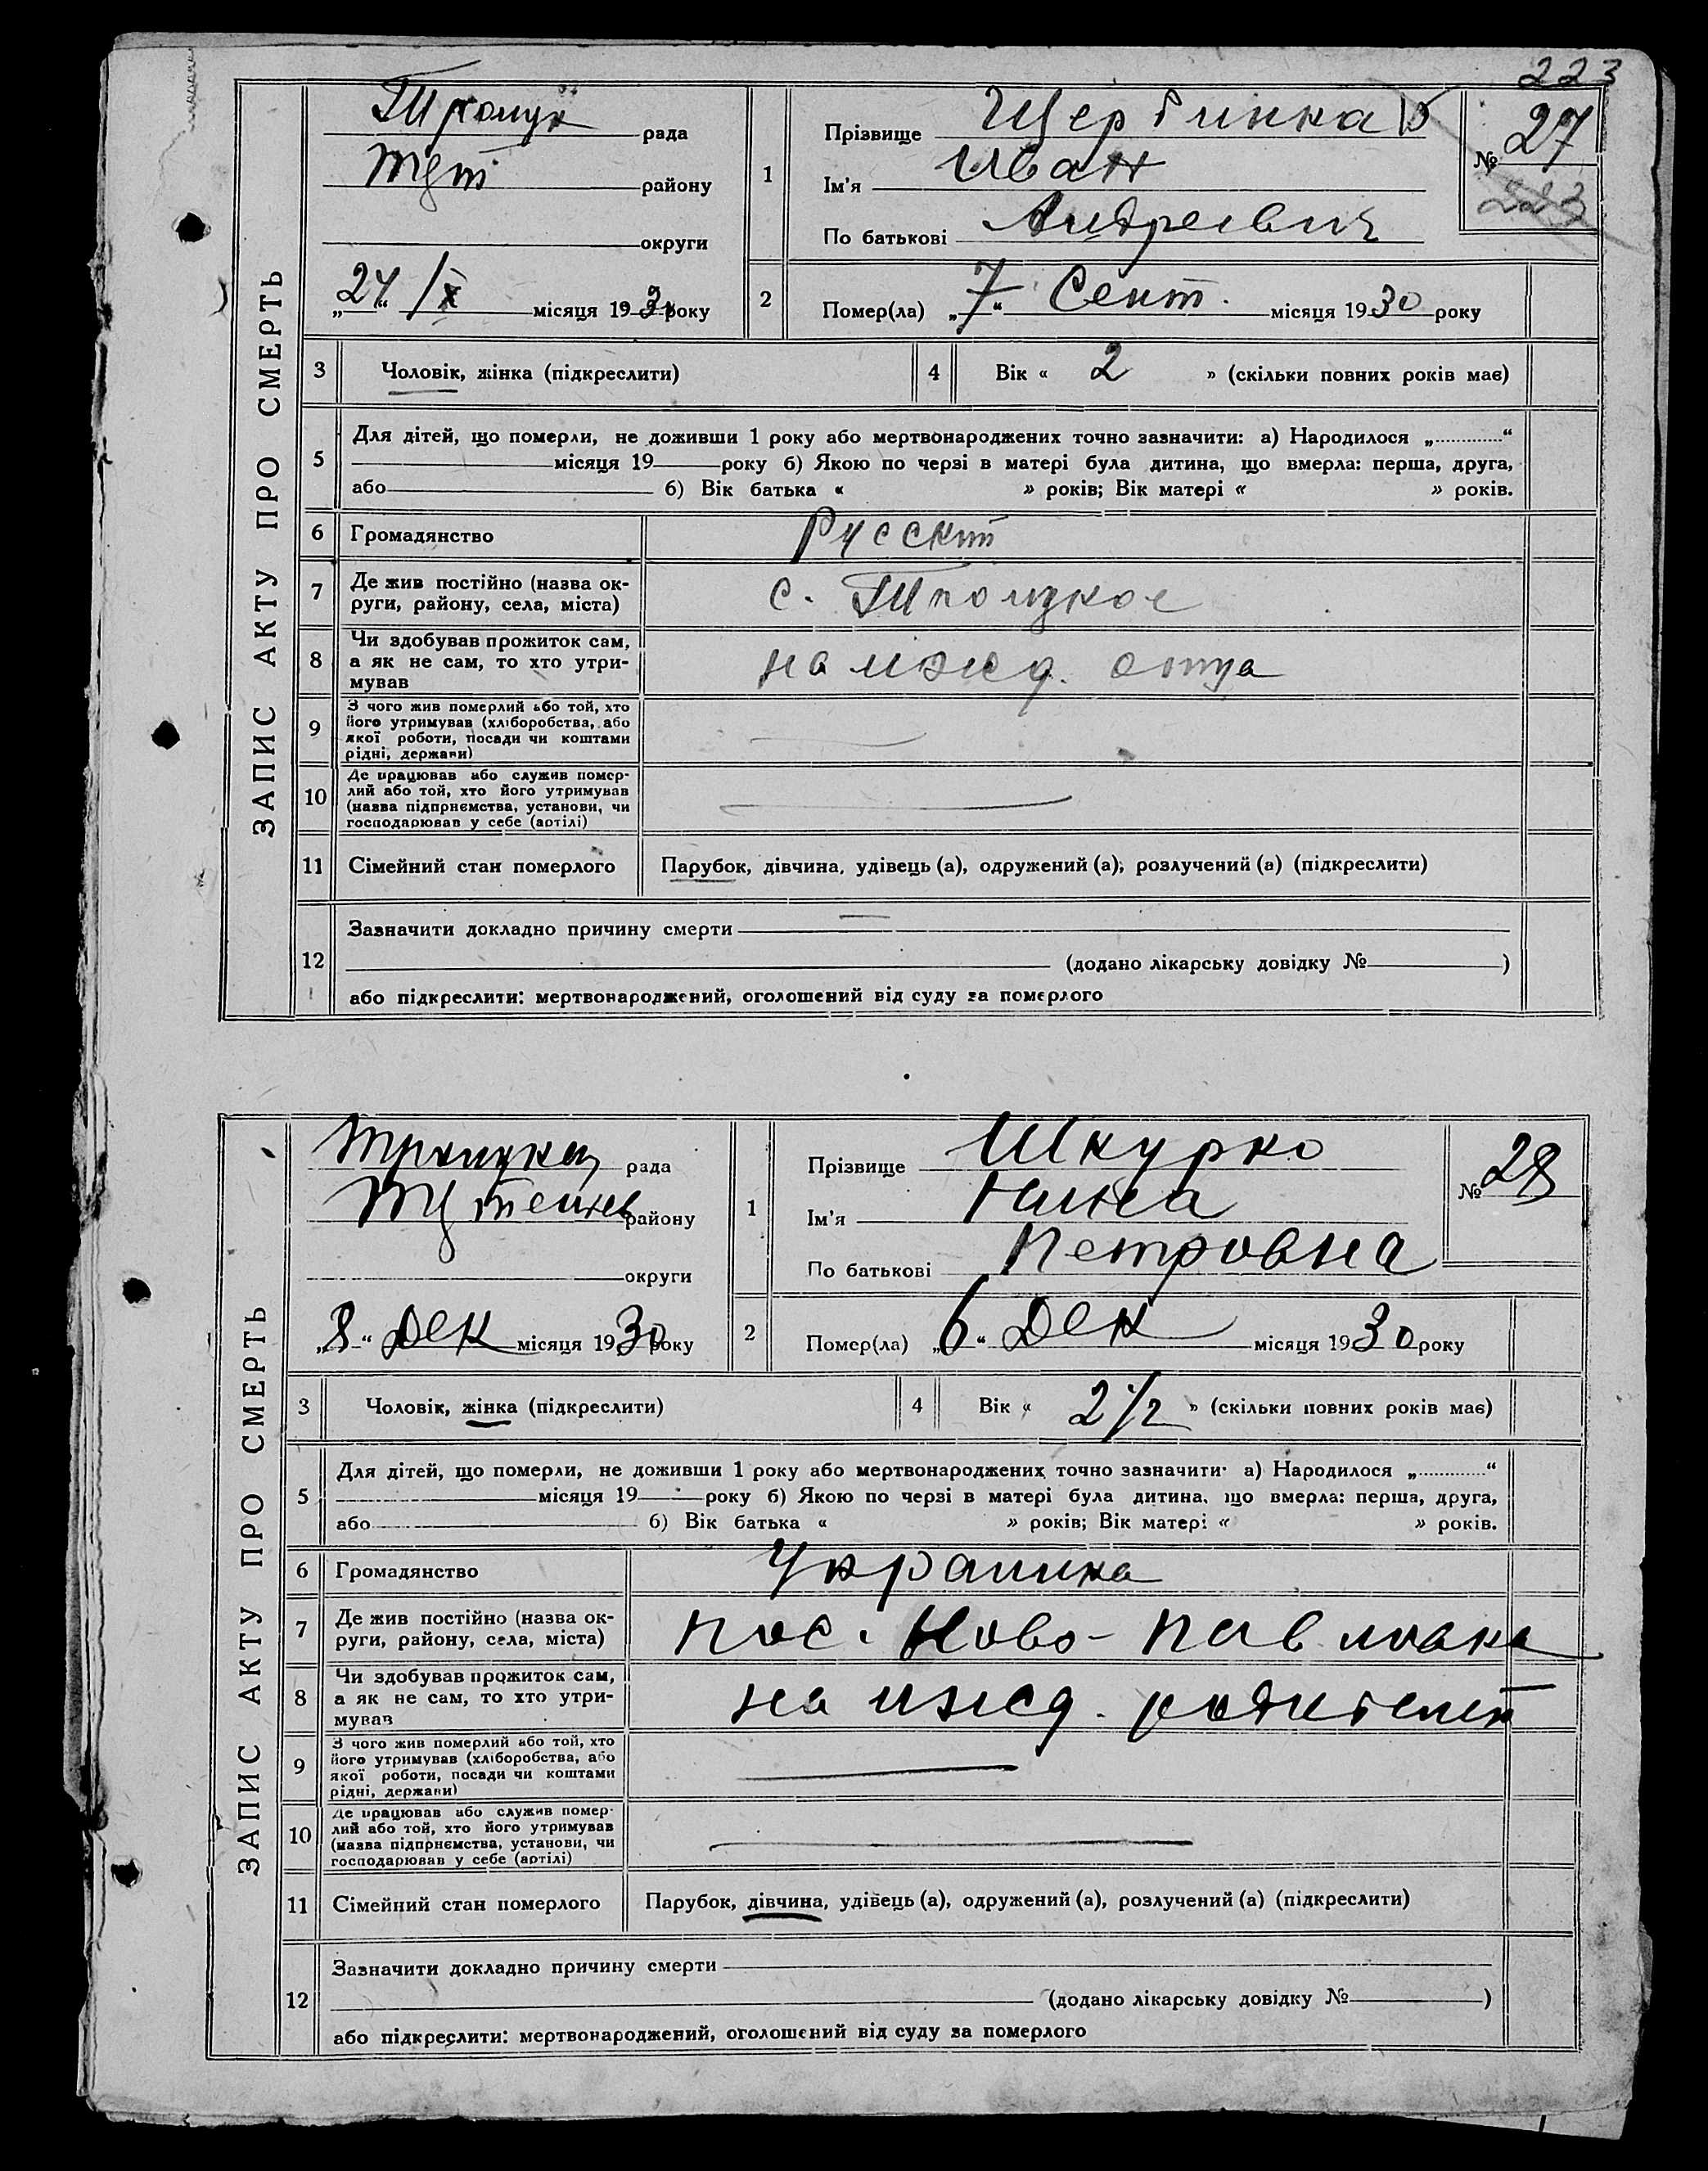 223
ЗАПИС АКТУ ПРО СМЕРТЬ
рада
району
округи
„24“ /X місяця 1930 року
1
Прізвище Щербинка
Ім'я Иван
По батькові Андреевич
№ 27
223
2
Помер(ла) „7“ Сент. місяця 1930 року
3
Чоловік, жінка (підкреслити)
4
Вік « 2 » (скільки повних років має)
5
Для дітей, що померли, не доживши 1 року або мертвонароджених точно зазначити: а) Народилося „............“
місяця 19 року б) Якою по черзі в матері була дитина, що вмерла: перша, друга,
або б) Вік батька « » років; Вік матері « » років.
6
Громадянство
Русский
7
Де жив постійно (назва ок-
руги, району, села, міста)
с. Троицкое
8
Чи здобував прожиток сам,
а як не сам, то хто утри-
мував
на ижд. отца
9
З чого жив померлий або той, хто
його утримував (хліборобства, або
якої роботи, посади чи коштами
рідні, держави)
10
Де працював або служив помер-
лий або той, хто його утримував
(назва підприємства, установи, чи
господарював у себе (артілі)
11
Сімейний стан померлого
Парубок, дівчина, удівець (а), одружений (а), розлучений (а) (підкреслити)
12
Зазначити докладно причину смерти
(додано лікарську довідку № )
або підкреслити: мертвонароджений, оголошений від суду за померлого
ЗАПИС АКТУ ПРО СМЕРТЬ
рада
району
округи
„8“ Дек місяця 1930 року
1
Прізвище Шкурко
Ім'я
По батькові Петровна
№ 28
2
Помер(ла) „6“ Дек місяця 1930 року
3
Чоловік, жінка (підкреслити)
4
Вік « 2 1/2 » (скільки повних років має)
5
Для дітей, що померли, не доживши 1 року або мертвонароджених точно зазначити: а) Народилося „............“
місяця 19 року б) Якою по черзі в матері була дитина, що вмерла: перша, друга,
або б) Вік батька « » років; Вік матері « » років.
6
Громадянство
Украинка
7
Де жив постійно (назва ок-
руги, району, села, міста)
пос. Ново-Павловка
8
Чи здобував прожиток сам,
а як не сам, то хто утри-
мував
на ижд. родителей
9
З чого жив померлий або той, хто
його утримував (хліборобства, або
якої роботи, посади чи коштами
рідні, держави)
10
Де працював або служив помер-
лий або той, хто його утримував
(назва підприємства, установи, чи
господарював у себе (артілі)
11
Сімейний стан померлого
Парубок, дівчина, удівець (а), одружений (а), розлучений (а) (підкреслити)
12
Зазначити докладно причину смерти
(додано лікарську довідку № )
або підкреслити: мертвонароджений, оголошений від суду за померлого